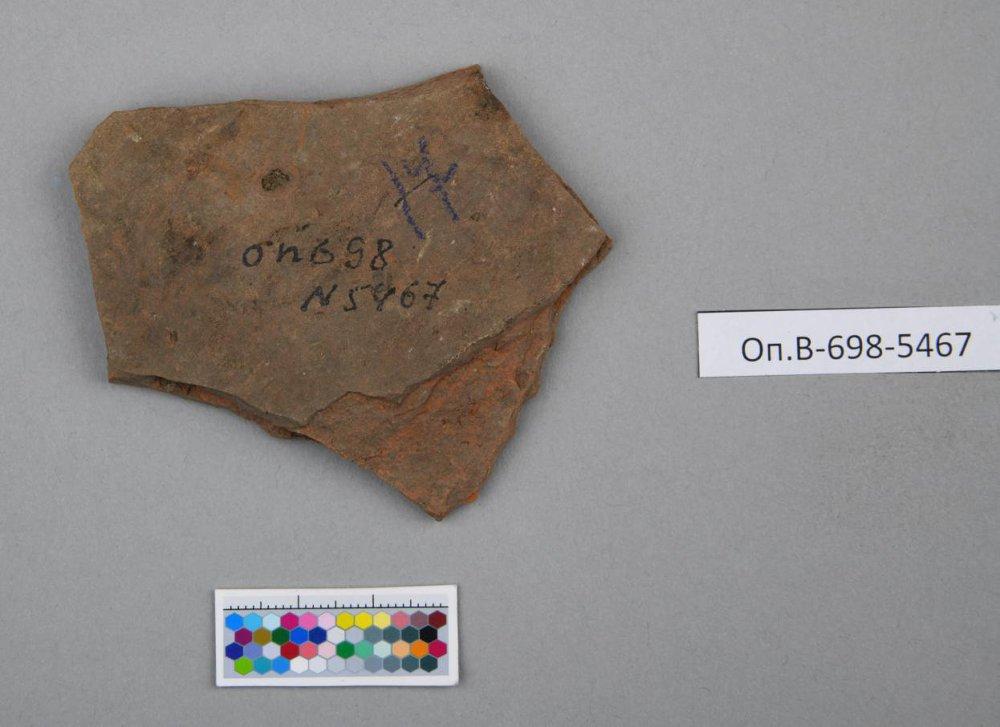 опв98
N5467
Оп.В-698-5467